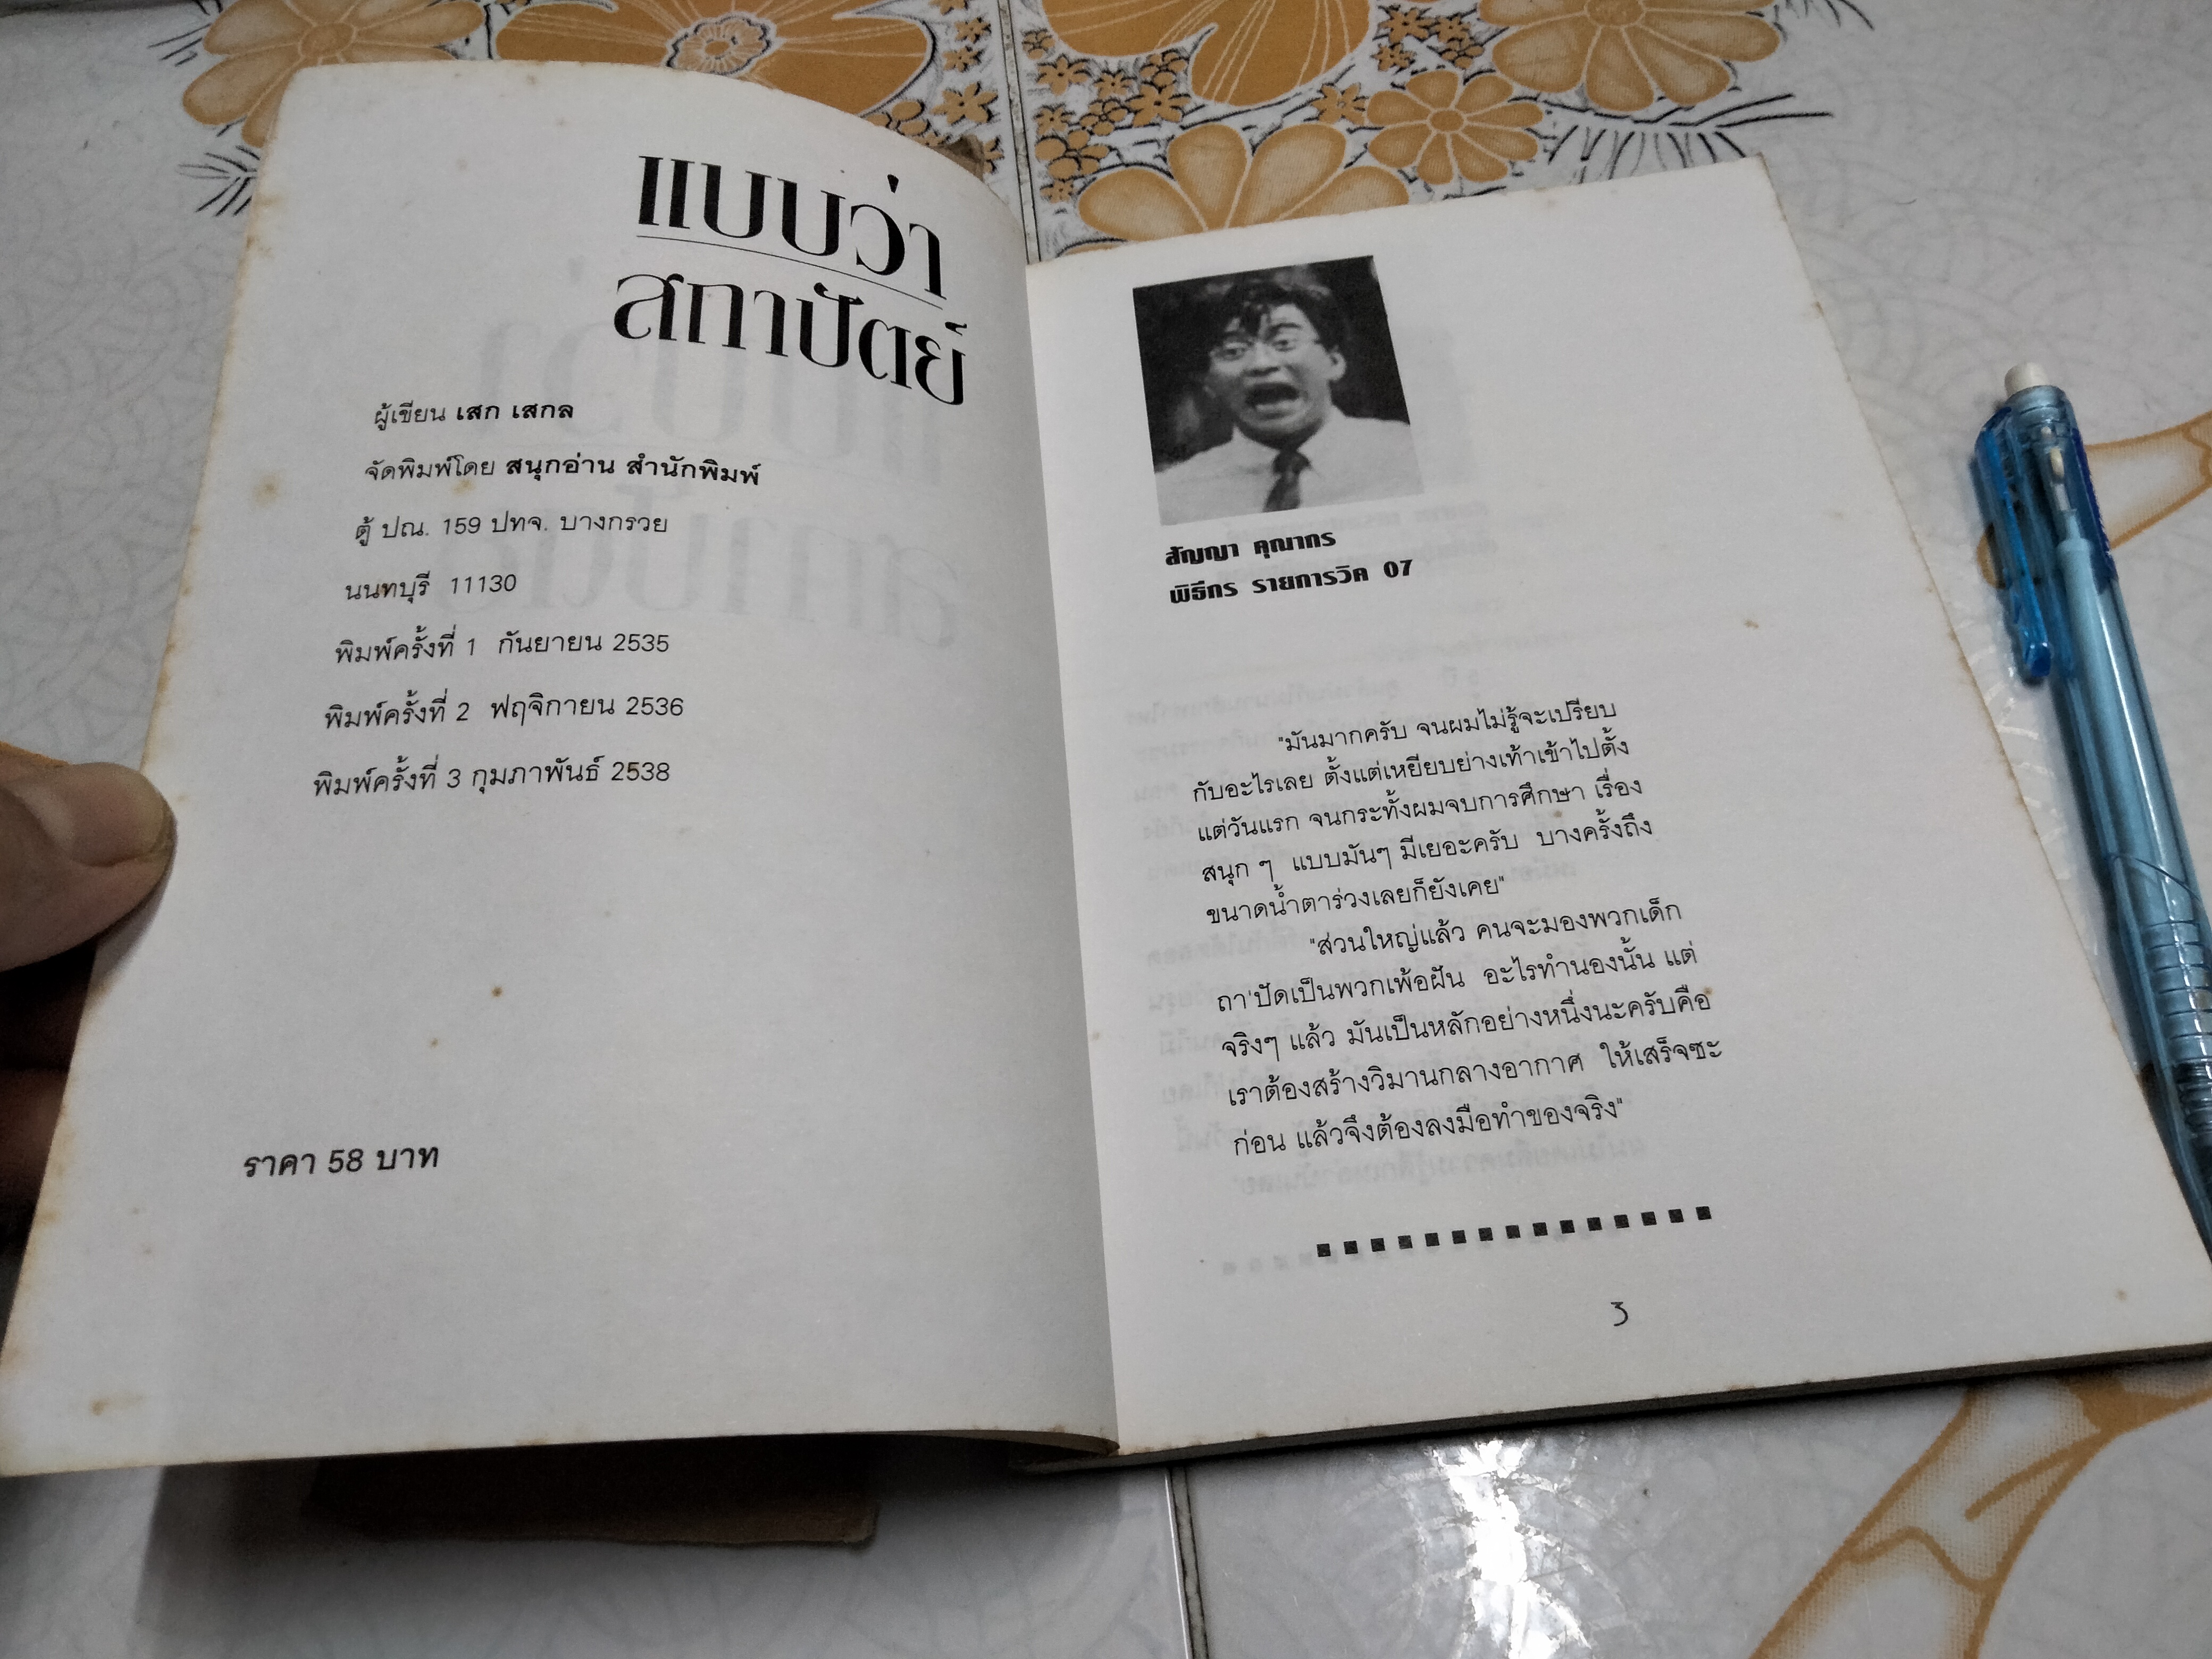 แบบว่า
สถาปัตย์
ผู้เขียน เสก เสกล
จัดพิมพ์โดย สนุกอ่าน สำนักพิมพ์
ตู้ ปณ. 159 ปทจ. บางกรวย
นนทบุรี 11130
พิมพ์ครั้งที่ 1 กันยายน 2535
พิมพ์ครั้งที่ 2 พฤจิกายน 2536
พิมพ์ครั้งที่ 3 กุมภาพันธ์ 2538
ราคา 58 บาท
สัญญา คุณากร
พิธีกร รายการวิค 07
"มันมากครับ จนผมไม่รู้จะเปรียบ
กับอะไรเลย ตั้งแต่เหยียบย่างเท้าเข้าไปตั้ง
แต่วันแรก จนกระทั้งผมจบการศึกษา เรื่อง
สนุก ๆ แบบมันๆ มีเยอะครับ บางครั้งถึง
ขนาดน้ำตาร่วงเลยก็ยังเคย"
"ส่วนใหญ่แล้ว คนจะมองพวกเด็ก
ถา'ปัดเป็นพวกเพ้อฝัน อะไรทำนองนั้น แต่
จริงๆ แล้ว มันเป็นหลักอย่างหนึ่งนะครับคือ
เราต้องสร้างวิมานกลางอากาศ ให้เสร็จซะ
ก่อน แล้วจึงต้องลงมือทำของจริง"
3